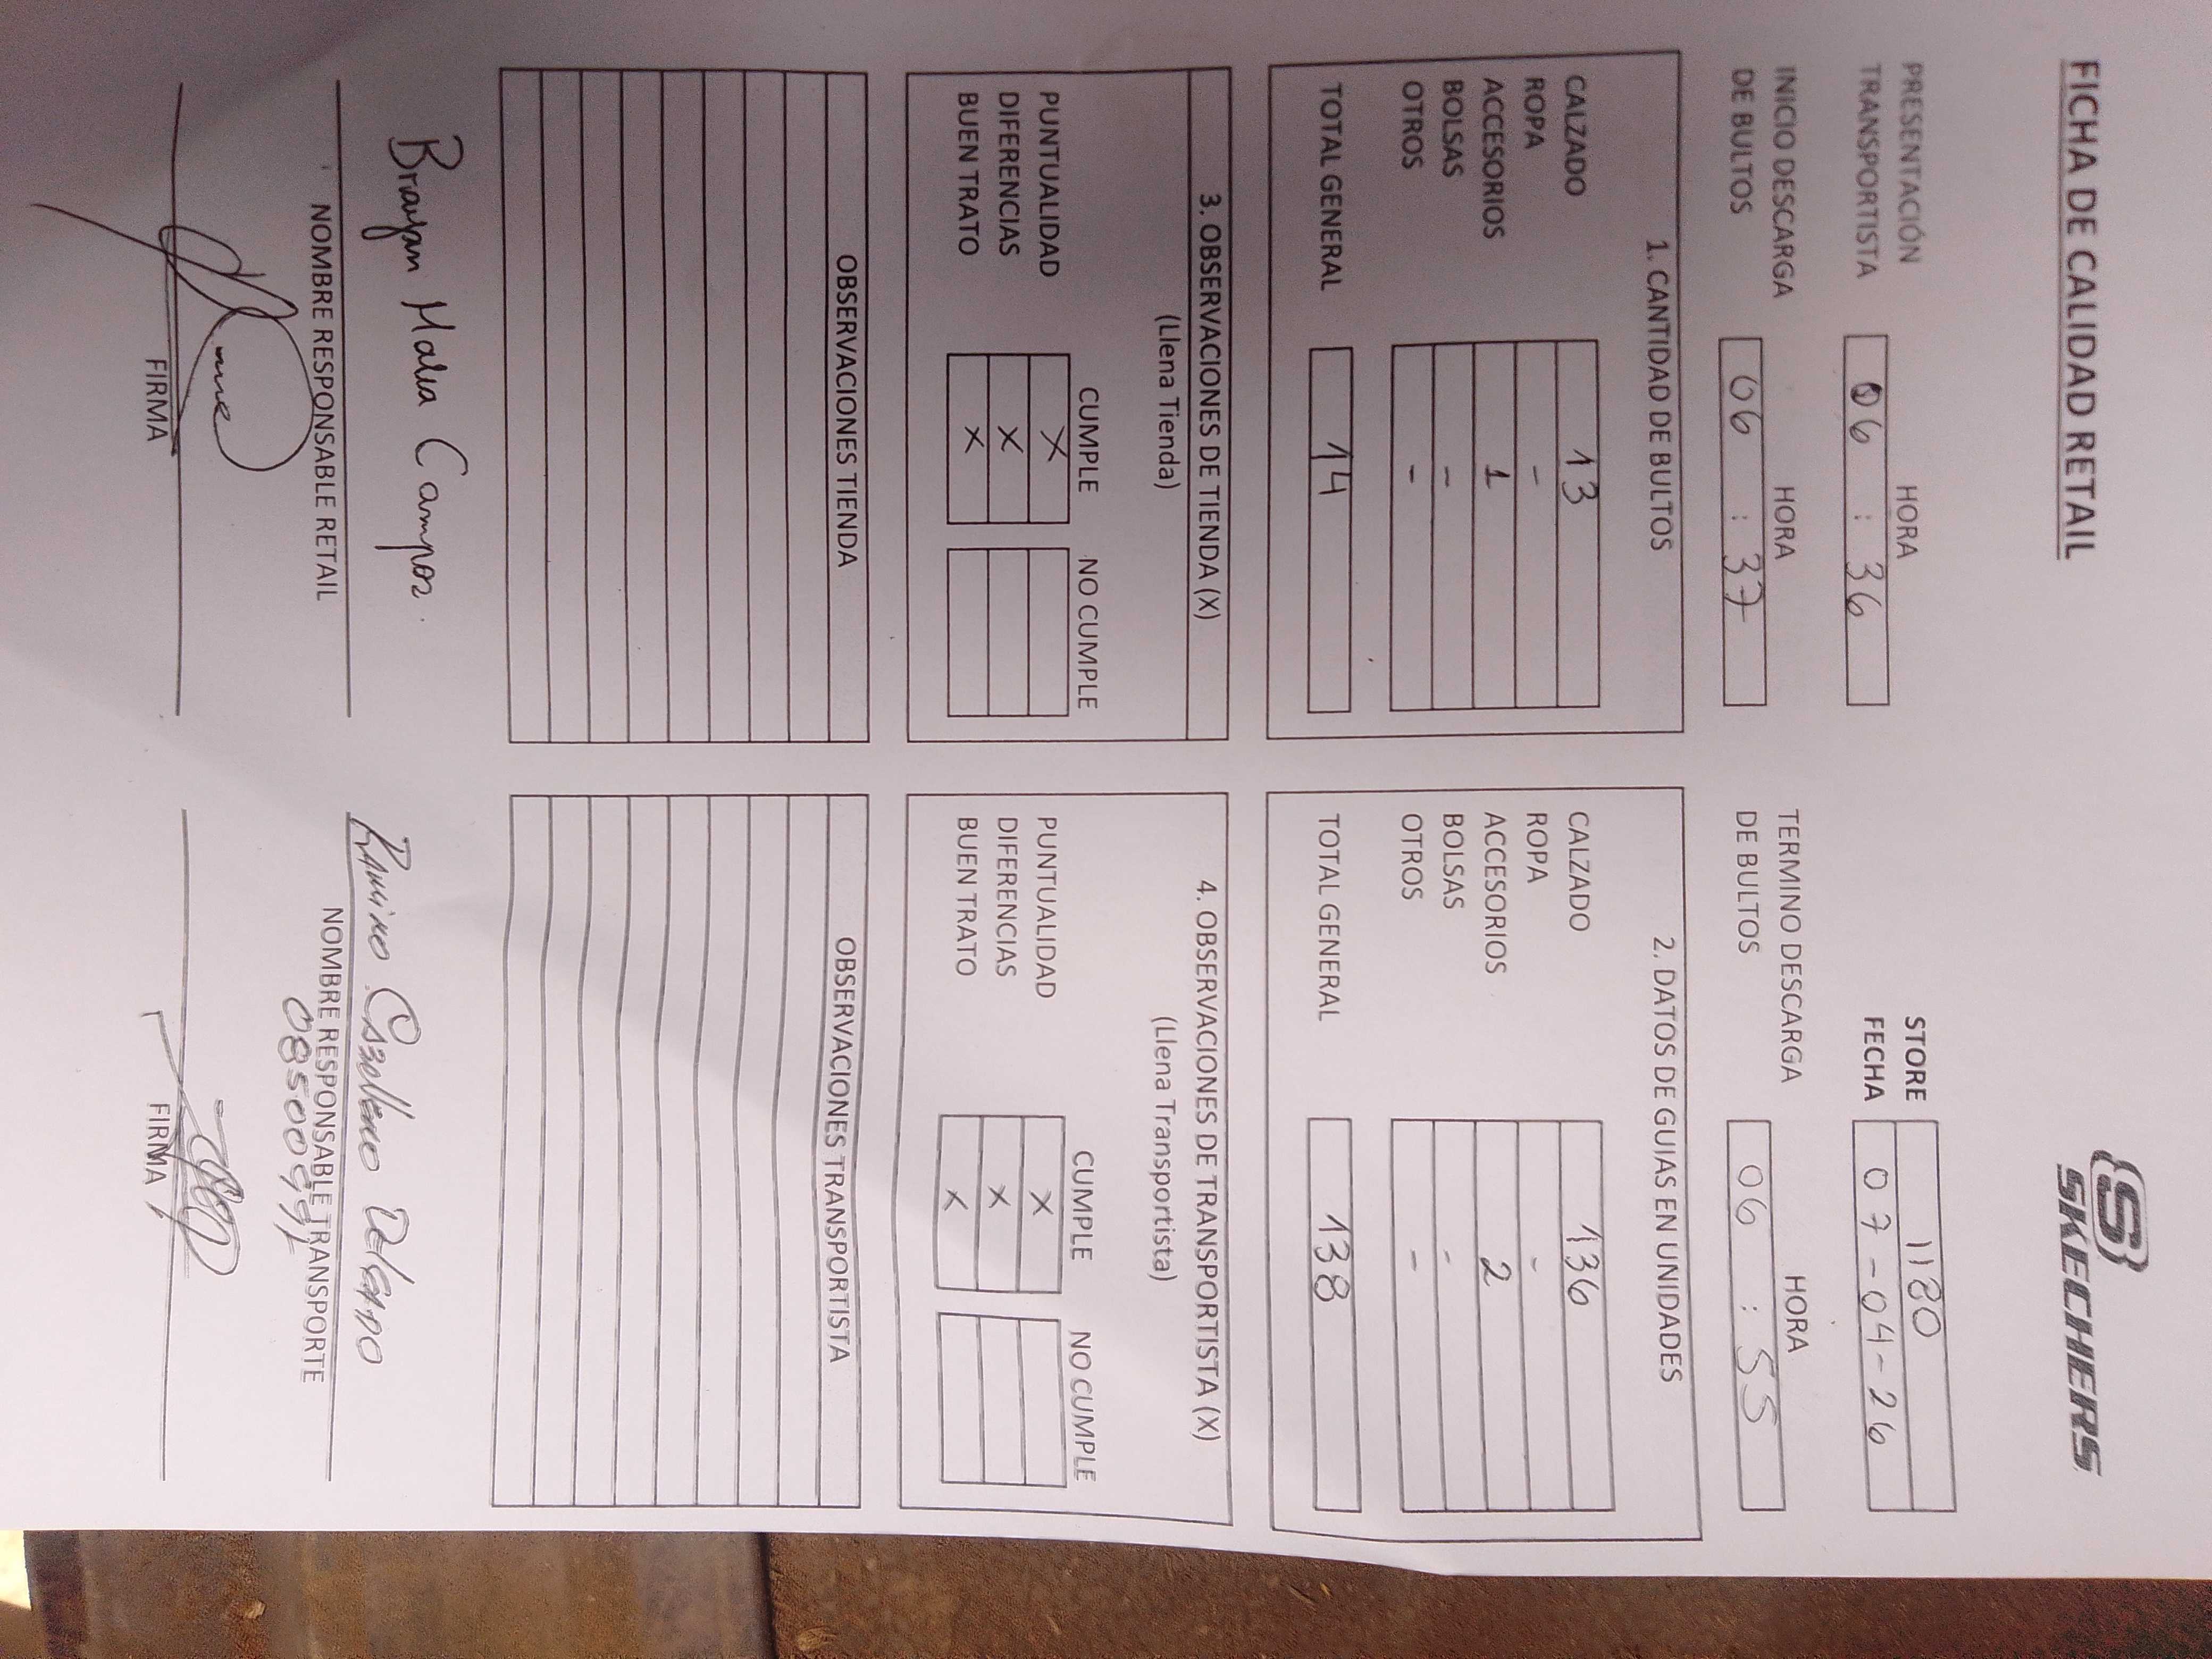 FICHA DE CALIDAD RETAIL
SKECHERS
STORE 1180
FECHA 07-04-26
PRESENTACIÓN TRANSPORTISTA
HORA
06 : 36
INICIO DESCARGA DE BULTOS
HORA
06 : 37
TERMINO DESCARGA DE BULTOS
HORA
06 : 55
1. CANTIDAD DE BULTOS
CALZADO 13
ROPA -
ACCESORIOS 1
BOLSAS -
OTROS -
TOTAL GENERAL 14
2. DATOS DE GUIAS EN UNIDADES
CALZADO 136
ROPA -
ACCESORIOS 2
BOLSAS -
OTROS -
TOTAL GENERAL 138
3. OBSERVACIONES DE TIENDA (X)
(Llena Tienda)
CUMPLE NO CUMPLE
PUNTUALIDAD X
DIFERENCIAS X
BUEN TRATO X
4. OBSERVACIONES DE TRANSPORTISTA (X)
(Llena Transportista)
CUMPLE NO CUMPLE
PUNTUALIDAD X
DIFERENCIAS X
BUEN TRATO X
OBSERVACIONES TIENDA
OBSERVACIONES TRANSPORTISTA
Brayan Campos.
NOMBRE RESPONSABLE RETAIL
FIRMA
NOMBRE RESPONSABLE TRANSPORTE
FIRMA